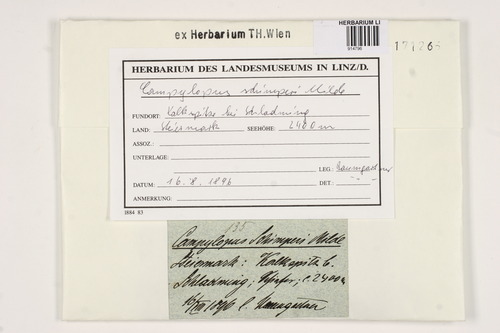 HERBARIUM LI
914796
ex Herbarium TH.Wien
171265
HERBARIUM DES LANDESMUSEUMS IN LINZ/D.
Campylopus schimperi Milde
FUNDORT: Kalkspitze bei Schladming
LAND: Steiermark SEEHÖHE: 2400 m
ASSOZ.:
UNTERLAGE:
LEG.: Baumgartner
DATUM: 16.8.1896 DET.:
ANMERKUNG:
I884 83
135
Campylopus Schimperi Milde
Steiermark: Kalkspitz b.
Schladming, c. 2400 m
16/VIII 1896 l. Baumgartner